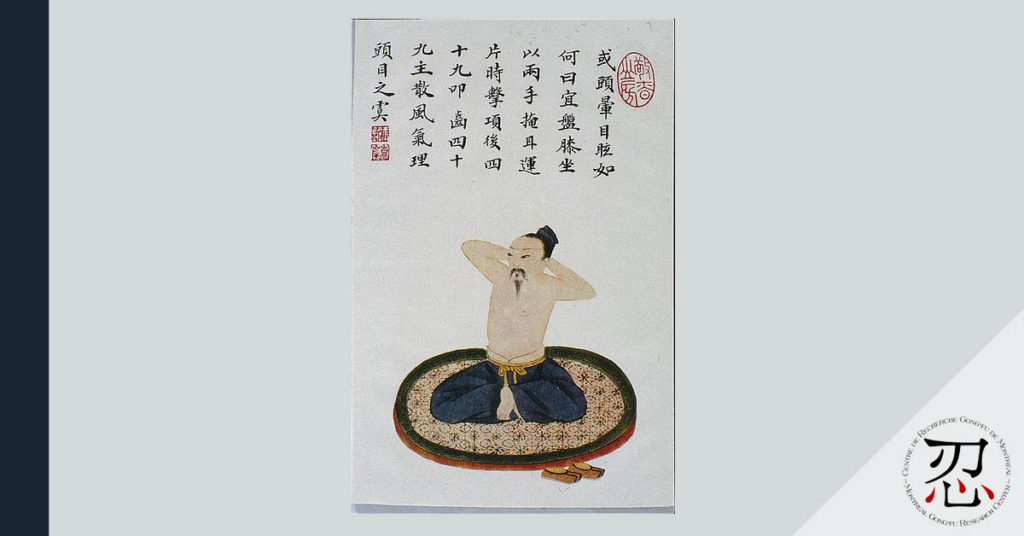 或頭暈目眩如
何曰宜盤膝坐
以兩手掩耳運
片時擊項後四
十九叩齒四十
九主散風氣理
頭目之虞
CENTRE DE RECHERCHE GONG-FU DE MONTRÉAL
忍
MONTREAL GONG-FU RESEARCH CENTER